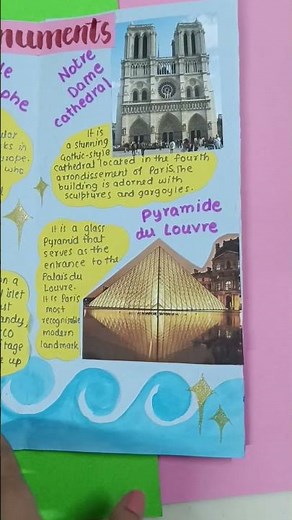 numents
Notre
Dame
cathedral
It is
a stunning
Gothic-style
cathedral located in the fourth
arrondissement of Paris. The
building is adorned with
sculptures and gargoyles.
Pyramide
du Louvre
It is a glass
Pyramid that
serves as the
entrance to the
Palais du
Louvre.
It is Paris
most
recognizable
modern
landmark
le
phe
ks in
rope.
who
n a
islet
ut
andy,
CO
tage
e up